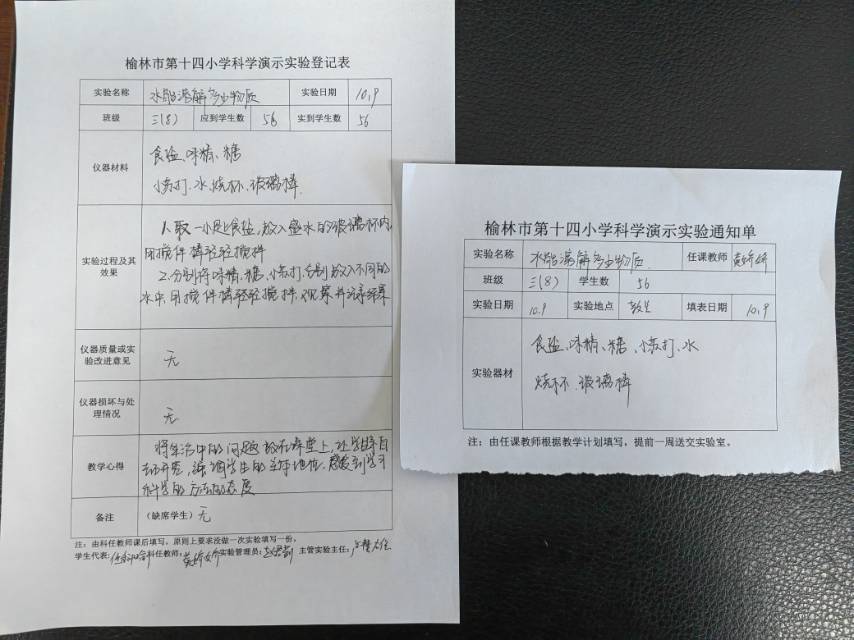 榆林市第十四小学科学演示实验登记表
实验名称 水能溶解多少物质 实验日期 10.9
班级 三(8) 应到学生数 56 实到学生数 56
仪器材料
食盐、味精、糖
小苏打、水、烧杯、玻璃棒
实验过程及其效果
1.取一小足食盐,放入盛水的玻璃杯内,
用搅伴棒轻轻搅拌
2.分别将味精、糖、小苏打,分别放入不同的
水中,用搅伴棒轻轻搅拌,观察并记录结果
仪器质量或实验改进意见 无
仪器损坏与处理情况 无
教学心得
将生活中的问题放在课堂上,让学生自
强调学生的主体地位,
科学的方法和态度
备注 (缺席学生) 无
注:由科任教师课后填写,原则上要求没做一次实验填写一份。
学生代表: 科任教师: 实验管理员: 主管实验主任:
榆林市第十四小学科学演示实验通知单
实验名称 水能溶解多少物质 任课教师
班级 三(8) 学生数 56
实验日期 10.9 实验地点 教室 填表日期 10.9
实验器材
食盐、味精、糖、小苏打、水
烧杯、玻璃棒
注:由任课教师根据教学计划填写,提前一周送交实验室。